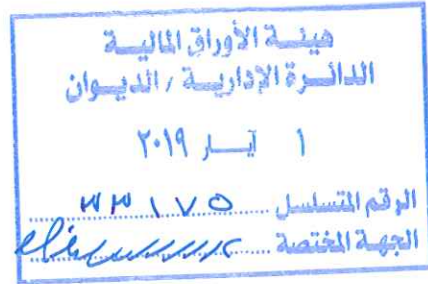 هيئة الأوراق المالية
الدائرة الإدارية / الديوان
١ آيار ٢٠١٩
الرقم المتسلسل ٣٣١٧٥
الجهة المختصة